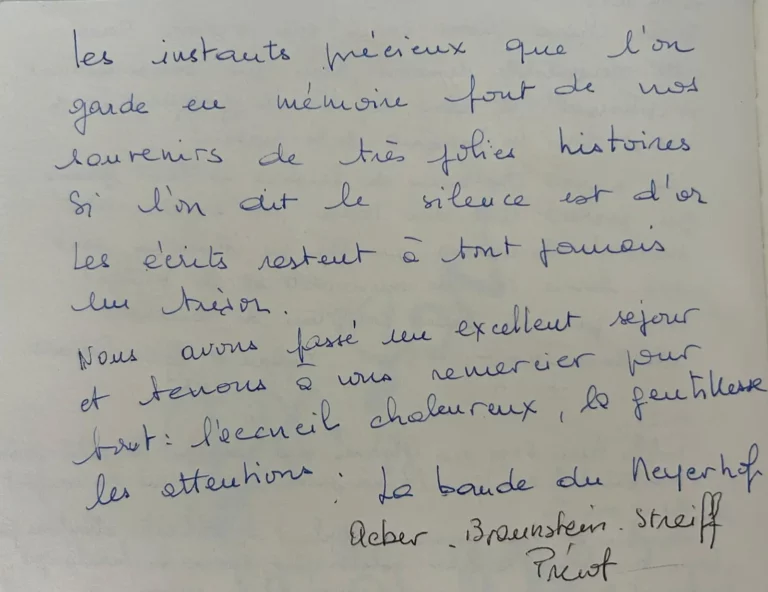 les instants précieux que l'on
garde en mémoire font de nos
souvenirs de très jolies histoires
Si l'on dit le silence est d'or
les écrits restent à tout jamais
un trésor.
Nous avons passé un excellent séjour
et tenons à vous remercier pour
tout : l'accueil chaleureux, la gentillesse
les attentions. La bande du Meyerhof
Acber. Braunstein. Streiff
Prévot